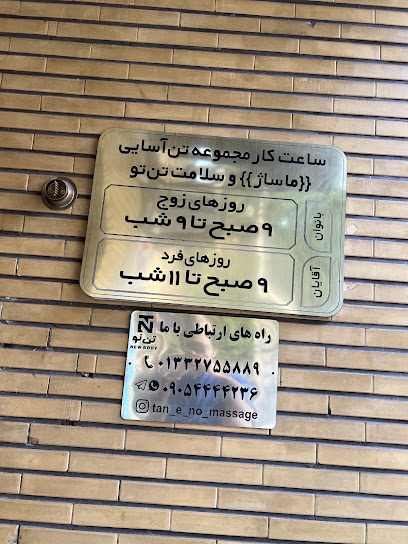 ساعت کار مجموعه تن‌آسایی
{{ماساژ}} و سلامت تن‌تو
بانوان
روزهای زوج
۹ صبح تا ۹ شب
آقایان
روزهای فرد
۹ صبح تا ۱۱ شب
راه های ارتباطی با ما
تن‌نو
NEW BODY
۰۱۳۳۲۷۵۵۸۸۹
۰۹۰۵۴۴۴۴۲۳۶
tan_e_no_massage